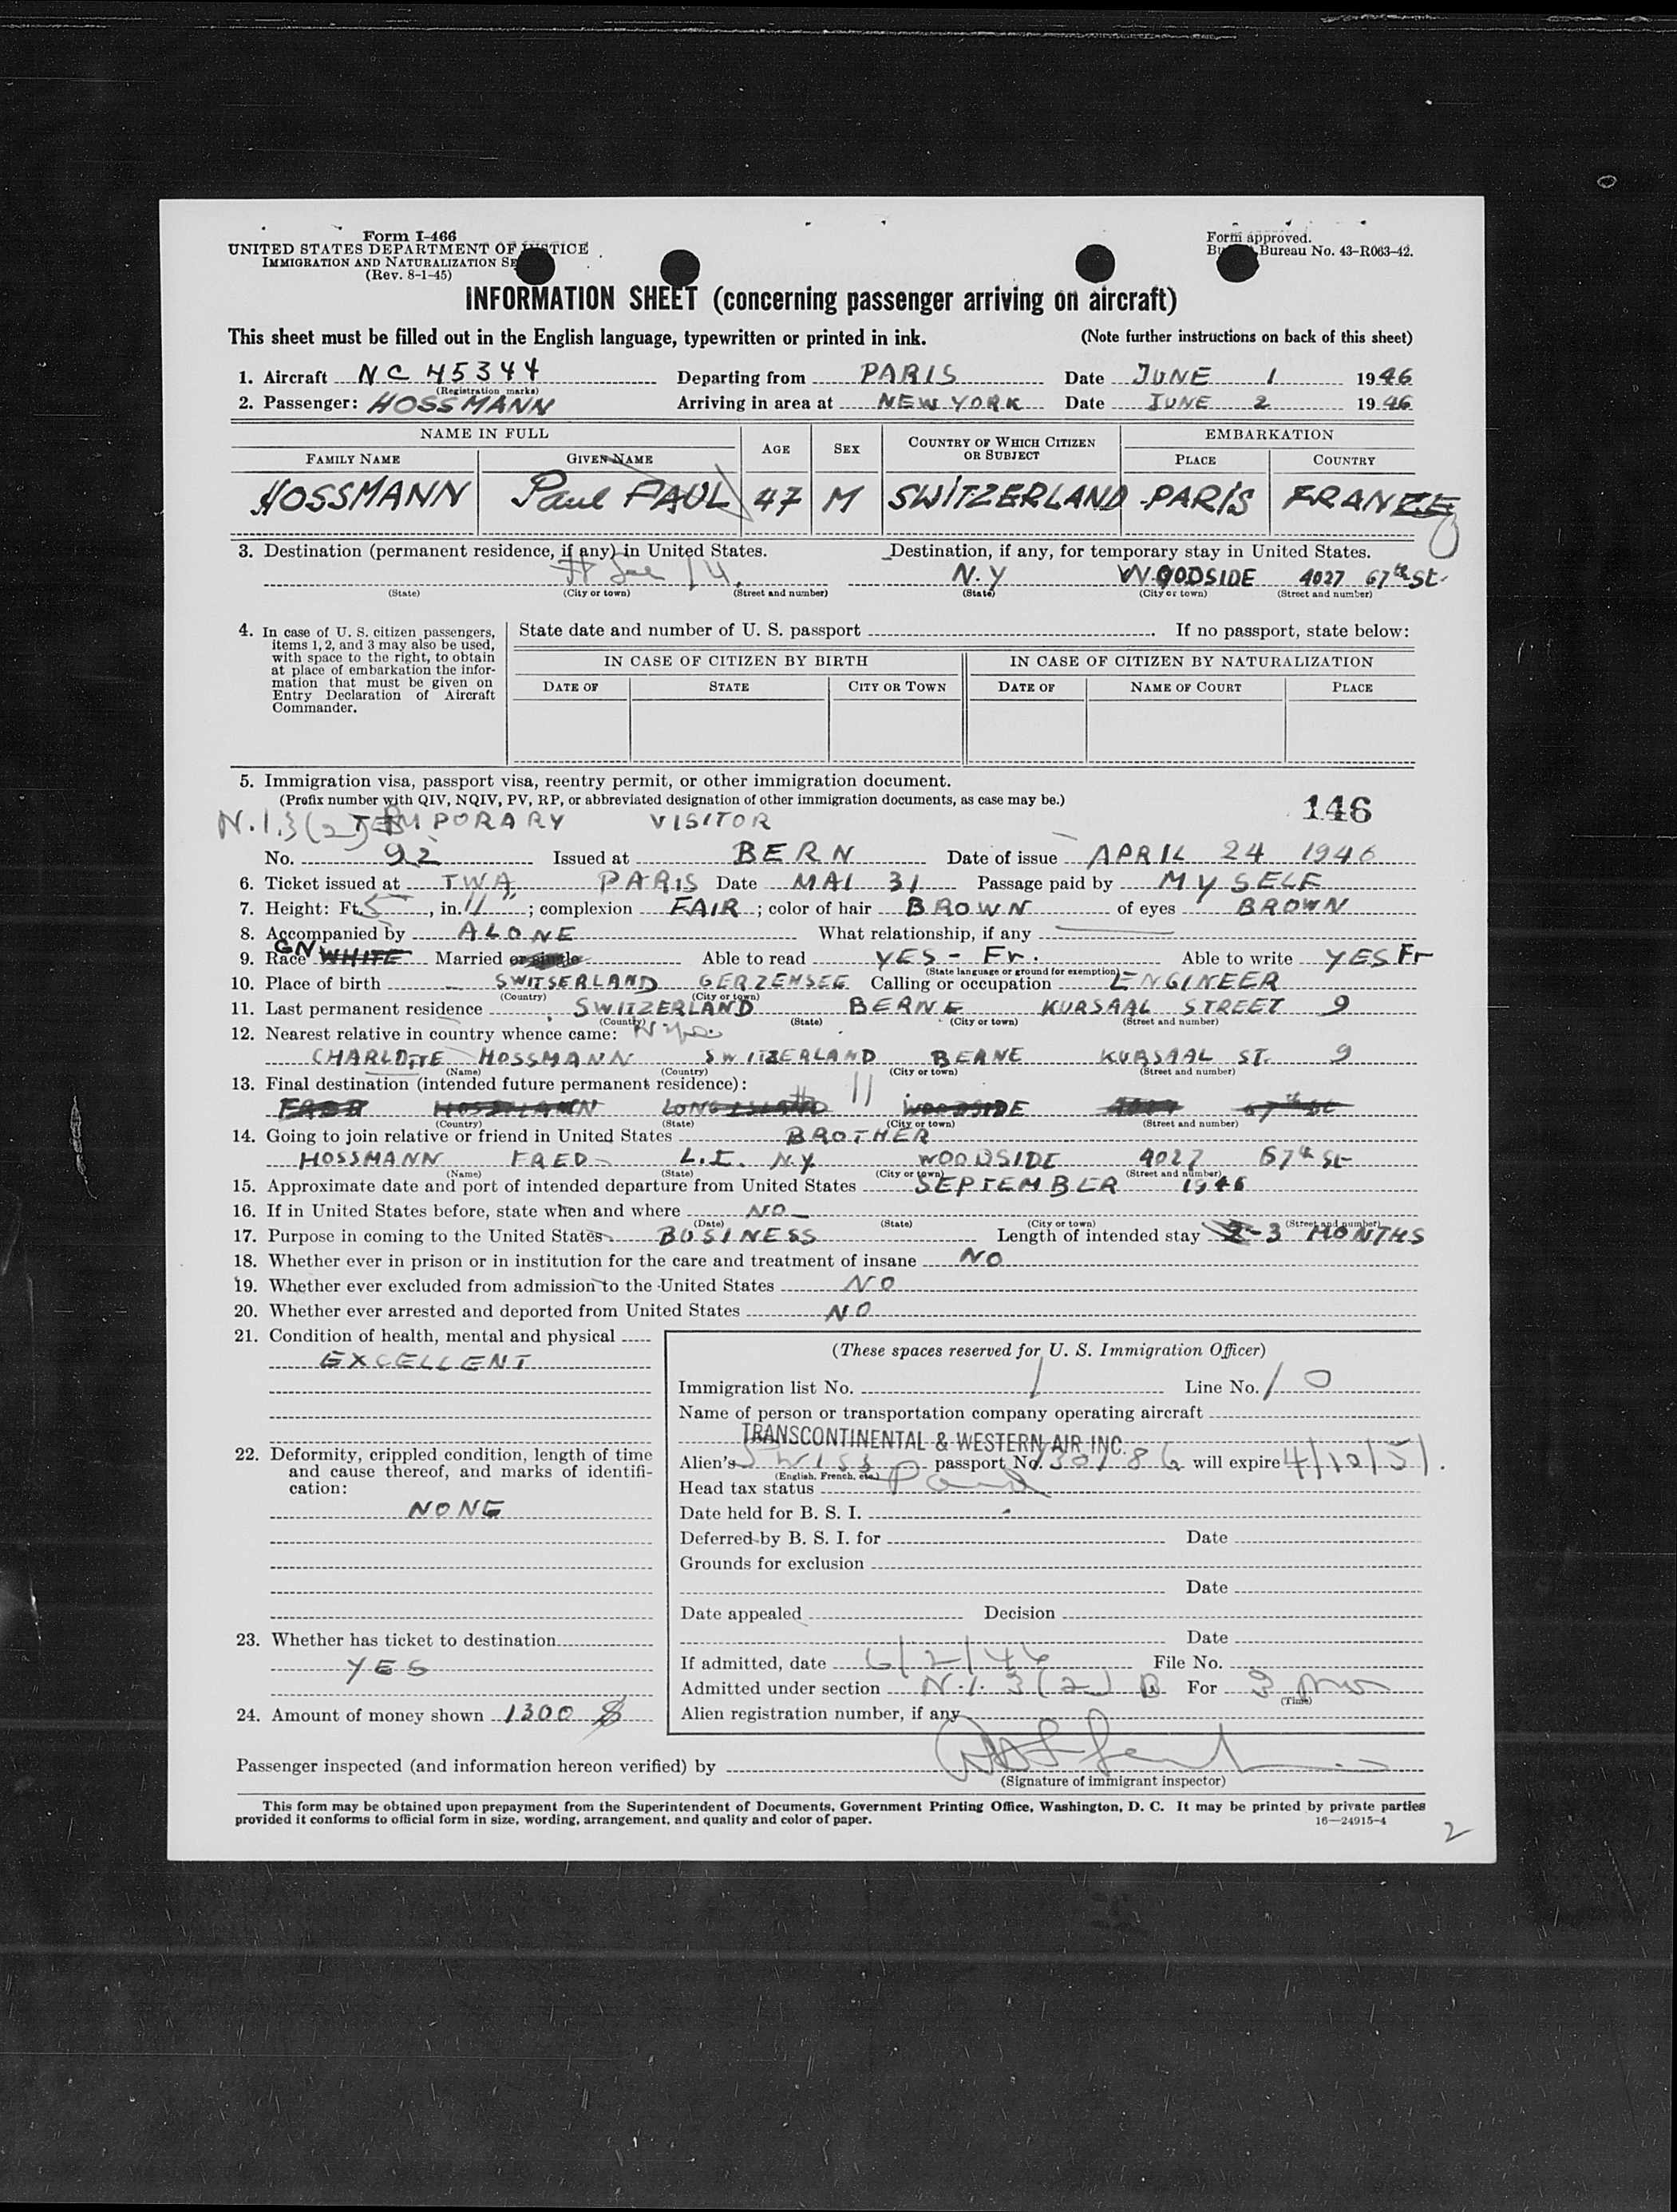 Form I-466
UNITED STATES DEPARTMENT OF JUSTICE
IMMIGRATION AND NATURALIZATION SE
(Rev. 8-1-45)
Form approved.
Bureau No. 43-R063-42.
INFORMATION SHEET (concerning passenger arriving on aircraft)
This sheet must be filled out in the English language, typewritten or printed in ink. (Note further instructions on back of this sheet)
1. Aircraft NC 45344 Departing from PARIS Date JUNE 1 1946
(Registration marks)
2. Passenger: HOSSMANN Arriving in area at NEW YORK Date JUNE 2 1946
NAME IN FULL AGE SEX COUNTRY OF WHICH CITIZEN OR SUBJECT EMBARKATION
FAMILY NAME GIVEN NAME PLACE COUNTRY
HOSSMANN Paul PAUL 47 M SWITZERLAND PARIS FRANCE
3. Destination (permanent residence, if any) in United States. Destination, if any, for temporary stay in United States.
N.Y WOODSIDE 4027 67th St.
(State) (City or town) (Street and number) (State) (City or town) (Street and number)
4. In case of U. S. citizen passengers,
items 1, 2, and 3 may also be used,
with space to the right, to obtain
at place of embarkation the infor-
mation that must be given on
Entry Declaration of Aircraft
Commander.
State date and number of U. S. passport . If no passport, state below:
IN CASE OF CITIZEN BY BIRTH IN CASE OF CITIZEN BY NATURALIZATION
DATE OF STATE CITY OR TOWN DATE OF NAME OF COURT PLACE
5. Immigration visa, passport visa, reentry permit, or other immigration document.
(Prefix number with QIV, NQIV, PV, RP, or abbreviated designation of other immigration documents, as case may be.) 146
N.I.3(2)B TEMPORARY VISITOR
No. 92 Issued at BERN Date of issue APRIL 24 1946
6. Ticket issued at TWA, PARIS Date MAI 31 Passage paid by MYSELF
7. Height: Ft. 5, in. 11"; complexion FAIR; color of hair BROWN of eyes BROWN
8. Accompanied by ALONE What relationship, if any
9. Race GN WHITE Married or single Able to read YES - Fr. Able to write YES Fr
(State language or ground for exemption)
10. Place of birth SWITSERLAND GERZENSEE Calling or occupation ENGINEER
(Country) (City or town)
11. Last permanent residence SWITZERLAND BERNE KURSAAL STREET 9
(Country) (State) (City or town) (Street and number)
12. Nearest relative in country whence came:
CHARLOTTE HOSSMANN SWITZERLAND BERNE KURSAAL ST. 9
(Name) (Country) (City or town) (Street and number)
13. Final destination (intended future permanent residence):
FRED HOSSMANN LONG ISLAND WOODSIDE 4027 67th St
(Country) (State) (City or town) (Street and number)
14. Going to join relative or friend in United States BROTHER
HOSSMANN FRED L.I. N.Y. WOODSIDE 4027 67th St
(Name) (State) (City or town) (Street and number)
15. Approximate date and port of intended departure from United States SEPTEMBER 1946
16. If in United States before, state when and where NO
(Date) (State) (City or town) (Street and number)
17. Purpose in coming to the United States BUSINESS Length of intended stay 2-3 MONTHS
18. Whether ever in prison or in institution for the care and treatment of insane NO
19. Whether ever excluded from admission to the United States NO
20. Whether ever arrested and deported from United States NO
21. Condition of health, mental and physical
EXCELLENT
22. Deformity, crippled condition, length of time
and cause thereof, and marks of identifi-
cation:
NONE
23. Whether has ticket to destination
YES
24. Amount of money shown 1300 $
(These spaces reserved for U. S. Immigration Officer)
Immigration list No. 1 Line No. 10
Name of person or transportation company operating aircraft
TRANSCONTINENTAL & WESTERN AIR INC.
Alien's Swiss passport No. 130186 will expire 4/10/51.
(English, French, etc.)
Head tax status Paid
Date held for B. S. I.
Deferred by B. S. I. for Date
Grounds for exclusion
Date
Date appealed Decision
Date
If admitted, date 6/2/46 File No.
Admitted under section N.I. 3(2) B For 3 mos
(Time)
Alien registration number, if any
Passenger inspected (and information hereon verified) by
(Signature of immigrant inspector)
This form may be obtained upon prepayment from the Superintendent of Documents, Government Printing Office, Washington, D. C. It may be printed by private parties
provided it conforms to official form in size, wording, arrangement, and quality and color of paper. 16—24915-4
2